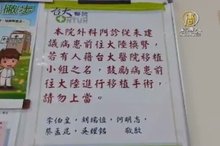 台大醫院
本院外科門診從未建
議病患前往大陸換腎,
若有人藉台大醫院移植
小組之名,鼓勵病患前
往大陸進行移植手術,
請勿上當。
李伯皇、胡瑞恒、何明志、
蔡孟昆、吳經閔 敬啟